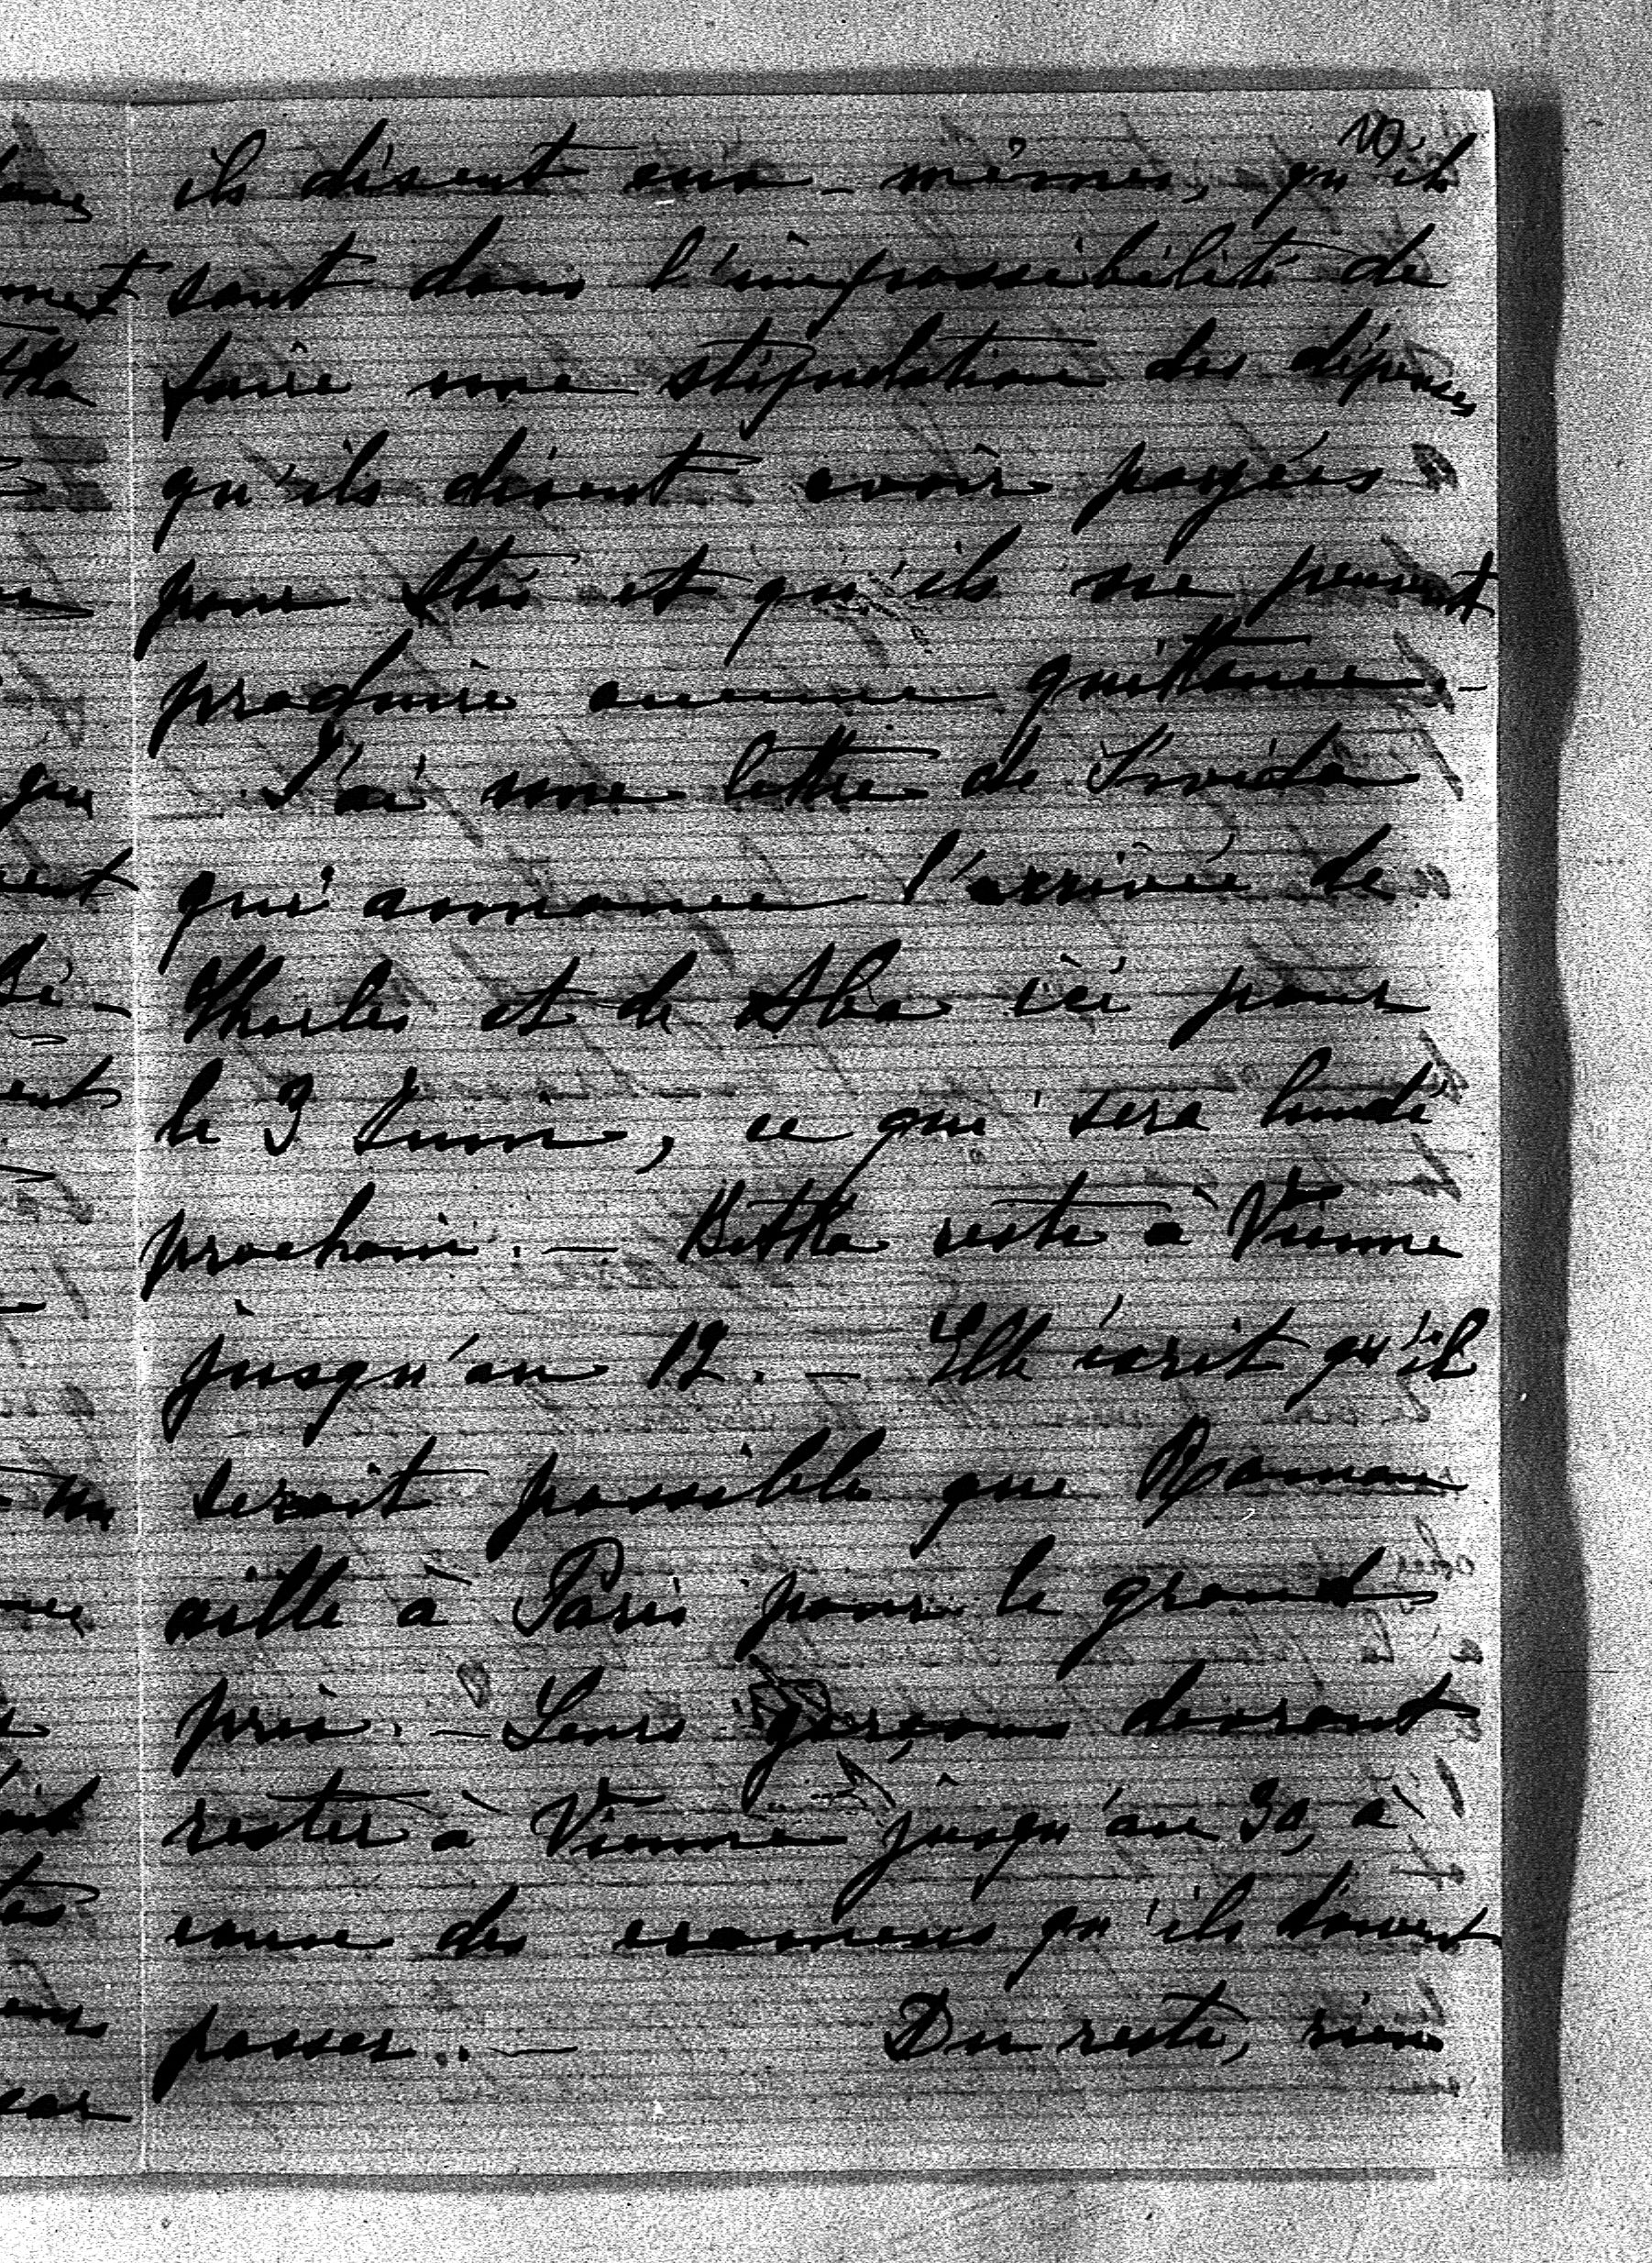 ils disent eux-mêmes, qu'ils
sont dans l'impossibilité de
faire une stipulation des dépenses
qu'ils disent avoir payées
pour et qu'ils ne peuvent
produire aucune quittance -
J'ai une lettre de
qui annonce l'arrivée de
Charles et de ici pour
le 3 Juin, ce qui sera lundi
prochain. - Betka reste à Vienne
jusqu'au 12. - Elle écrit qu'il
serait possible que Roman
aille à Paris pour le grand
prix. - Leurs garçons devront
rester à Vienne jusqu'au 30, à
cause des examens qu'ils doivent
passer. - Du reste, rien